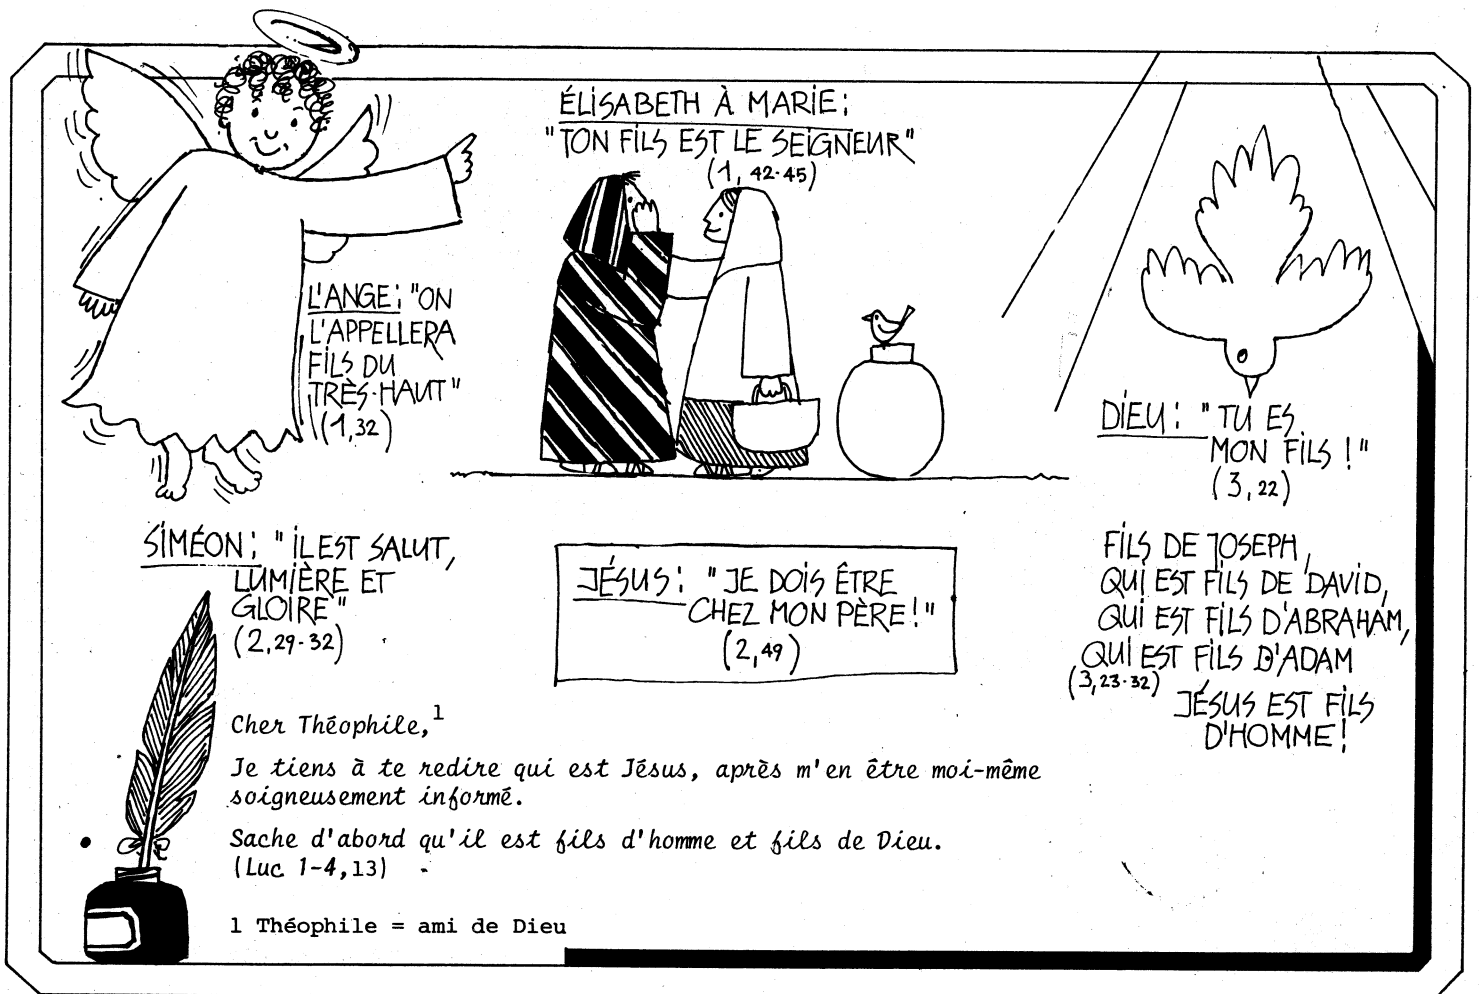 ÉLISABETH À MARIE:
"TON FILS EST LE SEIGNEUR"
(1, 42-45)
L'ANGE: "ON
L'APPELLERA
FILS DU
TRÈS-HAUT"
(1,32)
DIEU: "TU ES
MON FILS !"
(3,22)
SIMÉON: "IL EST SALUT,
LUMIÈRE ET
GLOIRE"
(2,29-32)
JÉSUS: "JE DOIS ÊTRE
CHEZ MON PÈRE!"
(2,49)
FILS DE JOSEPH,
QUI EST FILS DE DAVID,
QUI EST FILS D'ABRAHAM,
QUI EST FILS D'ADAM
(3,23-32)
JÉSUS EST FILS
D'HOMME!
Cher Théophile,1
Je tiens à te redire qui est Jésus, après m'en être moi-même
soigneusement informé.
Sache d'abord qu'il est fils d'homme et fils de Dieu.
(Luc 1-4,13)
1 Théophile = ami de Dieu